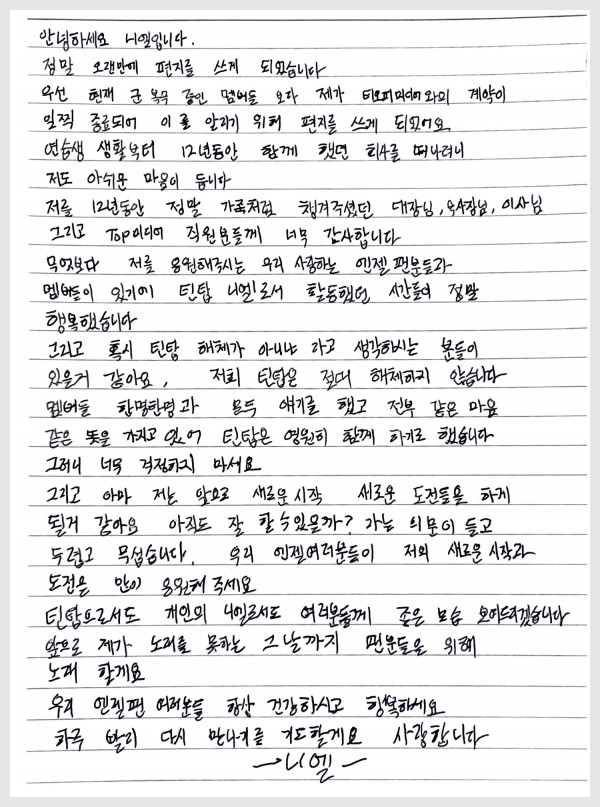 안녕하세요 니엘입니다.
정말 오랜만에 편지를 쓰게 되었습니다
우선 현재 군 복무 중인 멤버들 보다 제가 티오피미디어와의 계약이
일찍 종료되어 이를 알리기 위해 편지를 쓰게 되었어요
연습생 생활부터 12년동안 함께 했던 회사를 떠나려니
저도 아쉬운 마음이 듭니다
저를 12년동안 정말 가족처럼 챙겨주셨던 대장님, 우사장님, 이사님
그리고 Top미디어 직원분들께 너무 감사합니다
무엇보다 저를 응원해주시는 우리 사랑하는 엔젤팬분들과
멤버들이 있기에 틴탑 니엘로서 활동했던 시간들이 정말
행복했습니다
그리고 혹시 틴탑 해체가 아니냐 라고 생각하시는 분들이
있을거 같아요, 저희 틴탑은 절대 해체하지 않습니다
멤버들 한명한명과 모두 얘기를 했고 전부 같은 마음
같은 뜻을 가지고 있어 틴탑은 영원히 함께 하기로 했습니다
그러니 너무 걱정하지 마세요
그리고 아마 저는 앞으로 새로운시작 새로운 도전들을 하게
될거 같아요 아직도 잘 할수있을까? 라는 의문이 들고
두렵고 무섭습니다. 우리 엔젤여러분들이 저의 새로운시작과
도전을 많이 응원해 주세요
틴탑으로서도 개인의 니엘로서도 여러분들께 좋은 모습 보여드리겠습니다
앞으로 제가 노래를 못하는 그날까지 팬분들을 위해
노래 할게요
우리 엔젤팬 여러분들 항상 건강하시고 행복하세요
하루 빨리 다시 만나기를 기도할게요 사랑합니다
-니엘-